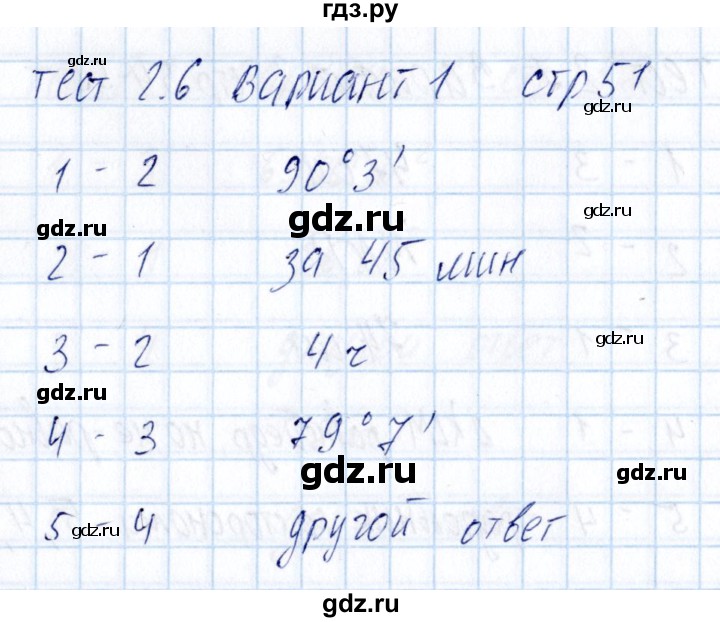 гдз.ру
gdz.ru
тест 2.6 вариант 1 стр 51
gdz.ru
1 - 2 90°3'
gdz.ru
gdz.ru
gdz.ru
2 - 1 за 45 мин
3 - 2 4 ч
gdz.ru
gdz.ru
4 - 3 79°7'
gdz.ru
gdz.ru
5 - 4 другой ответ
gdz.ru
gdz.ru